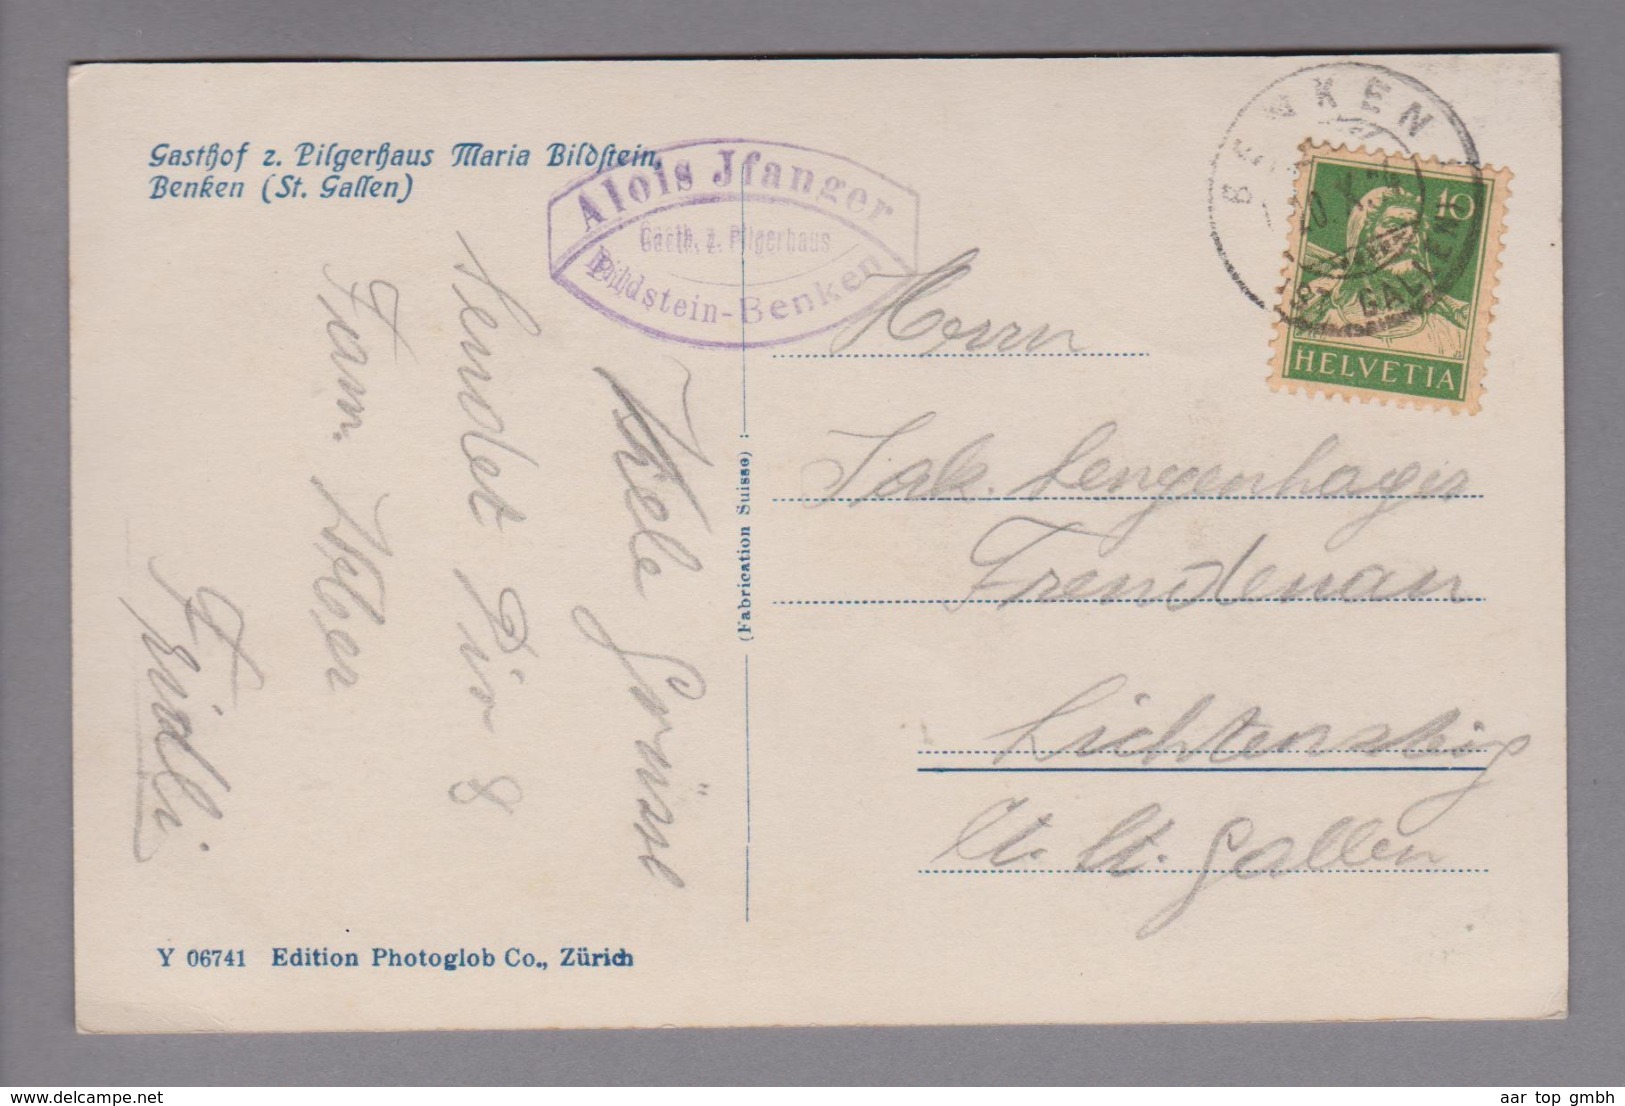 Gasthof z. Pilgerhaus Maria Bildstein,
Benken (St. Gallen)
Alois Jfanger
Gasth. z. Pilgerhaus
Bildstein-Benken
BENKEN
(ST. GALLEN)
10
HELVETIA
Viele Grüsse
sendet Dir
Fam. Weber
Fridli
(Fabrication Suisse)
Herrn
Jak. Lengenhager
Frendenau
Lichtensteig
Kt. St. Gallen
Y 06741 Edition Photoglob Co., Zürich
aar top gmbh
www.delcampe.net